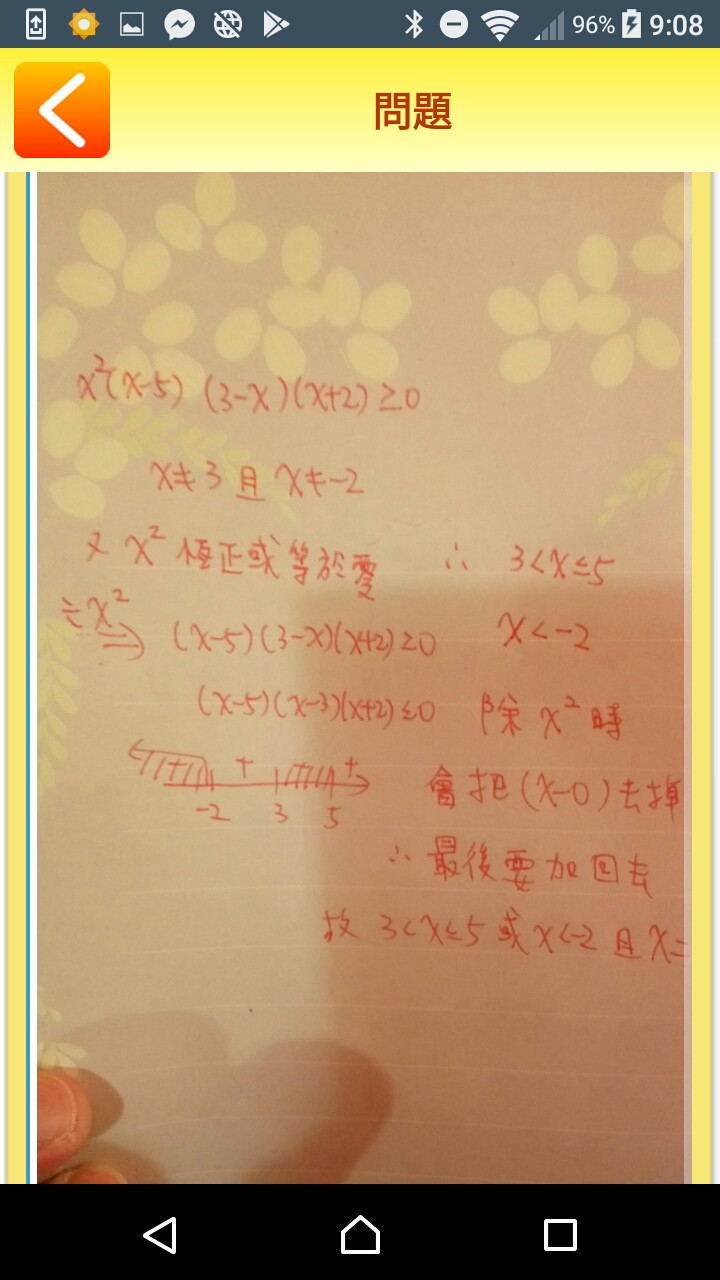 96% 9:08
問題
x²(x-5)(3-x)(x+2)≥0
x≠3 且 x≠-2
又 x² 恆正或等於零 ∴ 3<x≤5
÷x² ⇒ (x-5)(3-x)(x+2)≥0 x<-2
(x-5)(x-3)(x+2)≤0 除 x² 時
+ +
-2 3 5 會把(x-0)去掉
∴ 最後要加回去
故 3<x≤5 或 x<-2 且 x=